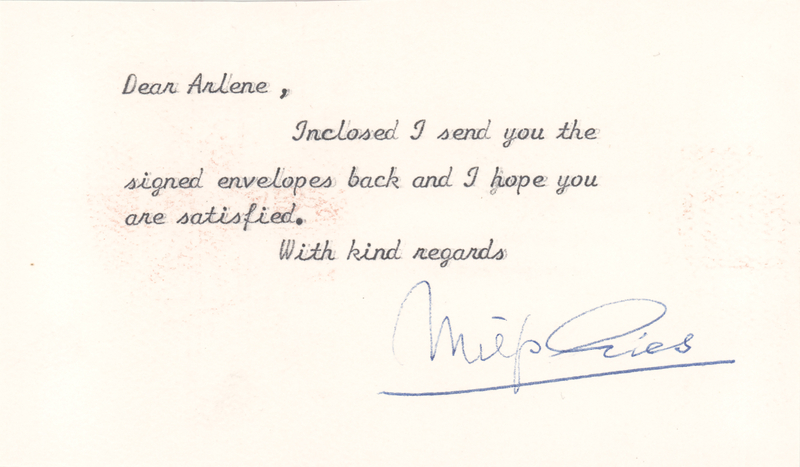 Dear Arlene ,
Inclosed I send you the
signed envelopes back and I hope you
are satisfied.
With kind regards
Miep Gies